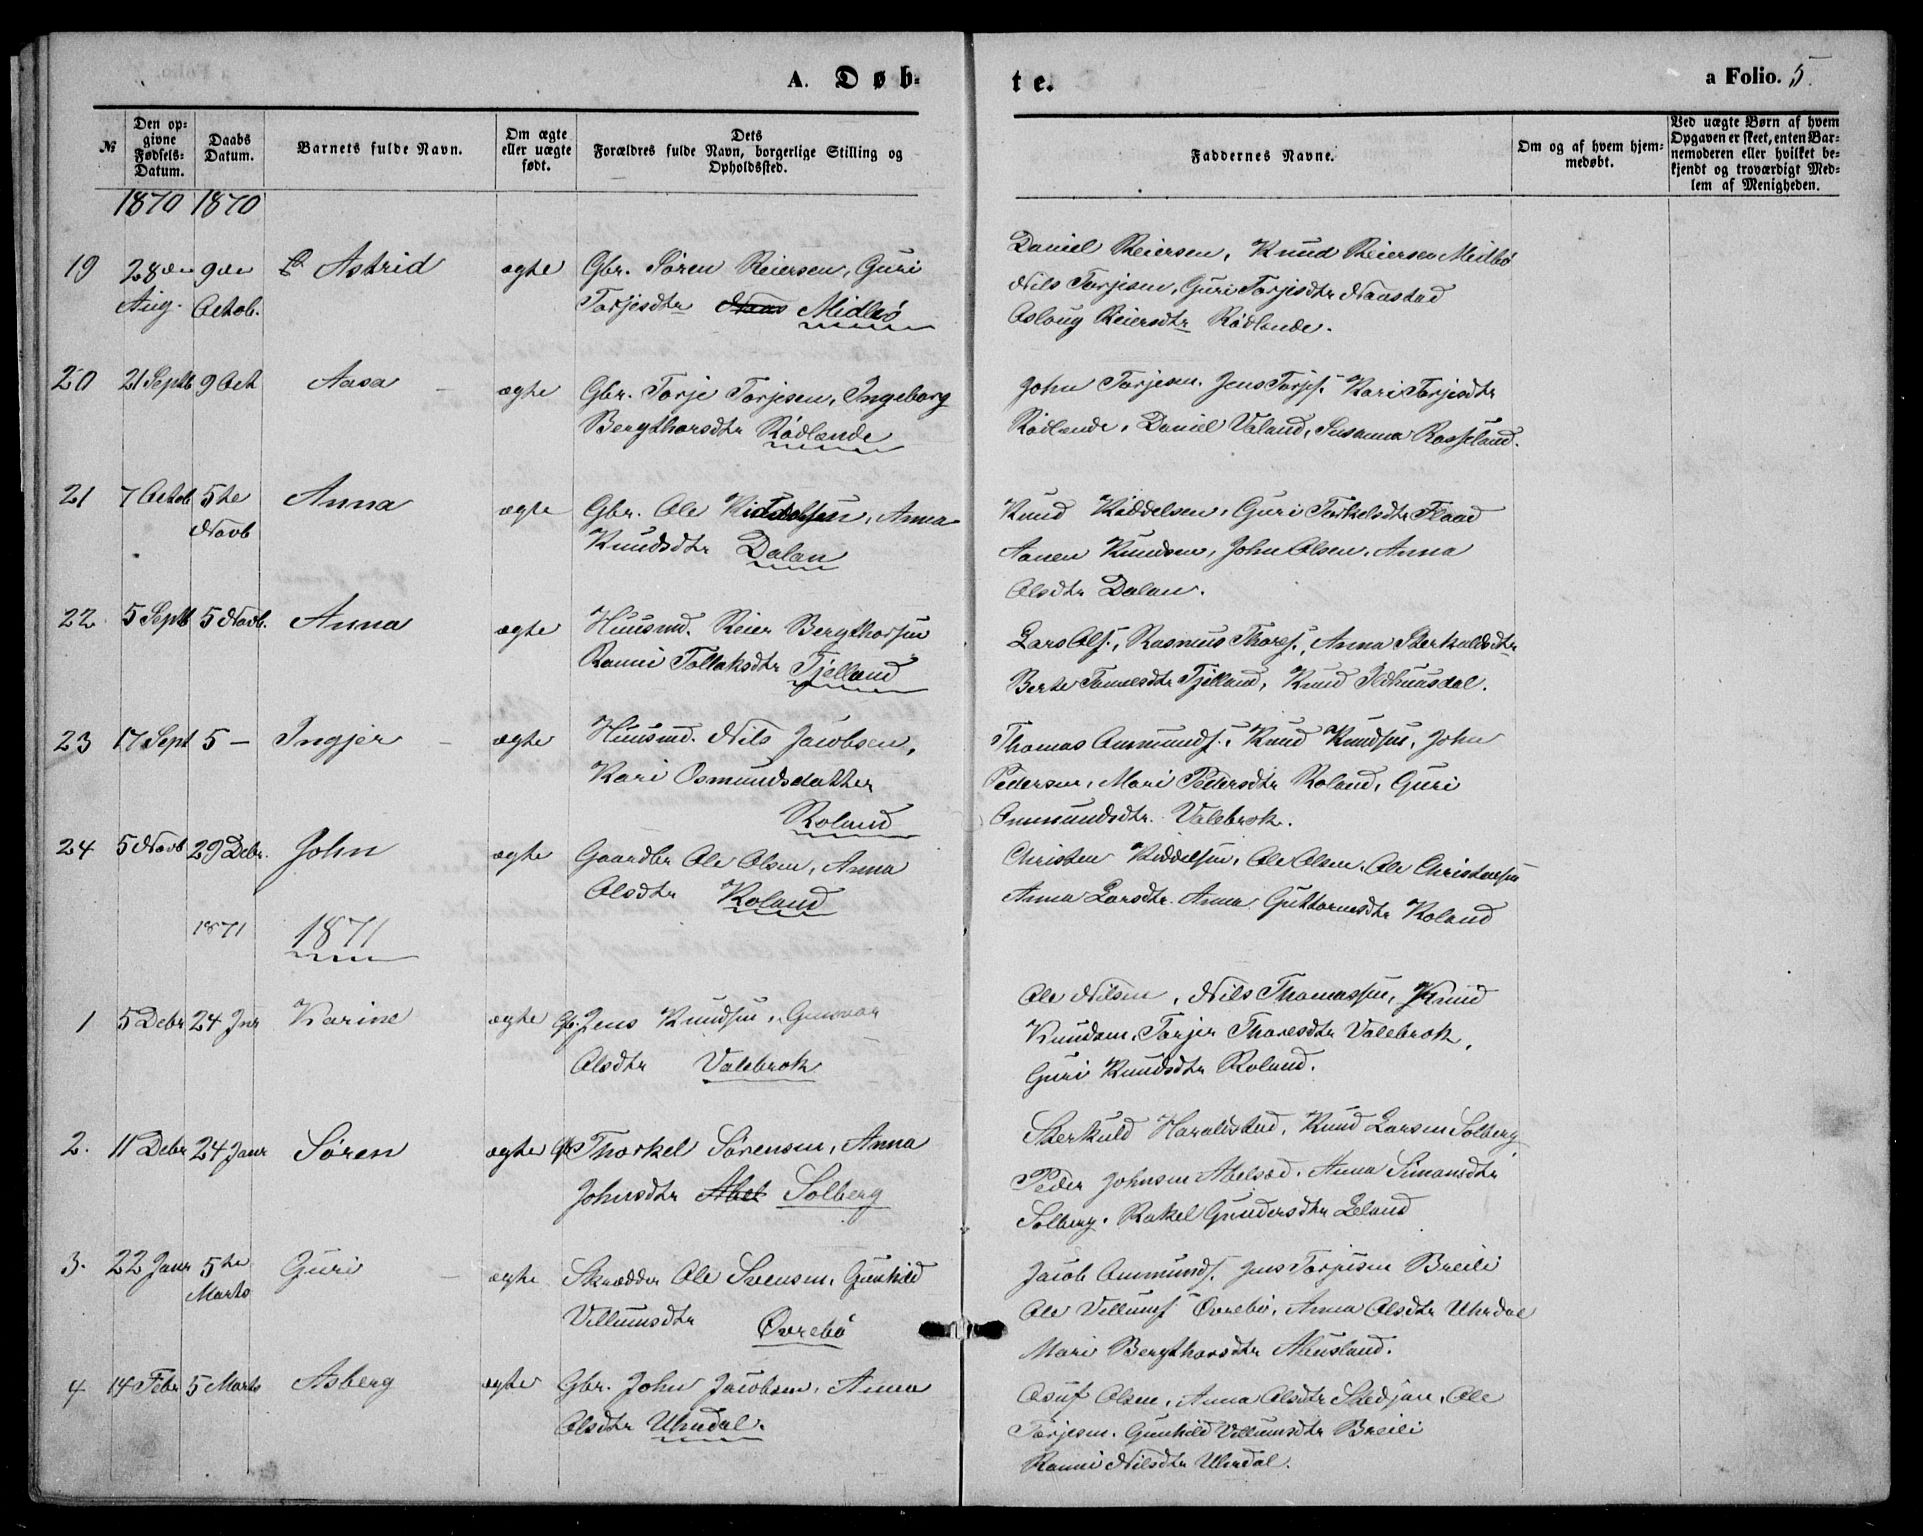 A. Døb=
te.
a Folio. 5.
№
Den op=
givne
Fødsels=
Datum.
Daabs
Datum.
Barnets fulde Navn.
Om ægte
eller uægte
født.
Dets
Forældres fulde Navn, borgerlige Stilling og
Opholdssted.
Faddernes Navne.
Om og af hvem hjem=
medøbt.
Ved uægte Børn af hvem
Opgaven er skeet, enten Bar=
nemoderen eller hvilket be=
kjendt og troværdigt Med=
lem af Menigheden.
1870 1870
19 28de 9de Astrid ægte Gbr. Sören Reiersen, Guri
Aug. Octob. Torjesdtr Midbö
Daniel Reiersen, Knud Reiersen Midbö
Nils Torjesen, Guri Torjesdtr Naastad
Aslaug Reiersdtr Rödlande.
20 21 Septb 9 Oct Aasa ægte Gbr. Torje Torjesen, Ingeborg
Bergthorsdtr Rödlande
John Torjesen, Jens Torjs. Kari Torjesdtr
Rödlande, Daniel Valand, Susanna Rosseland.
21 7 Octob 5te Anna ægte Gbr. Ole Kiddelsen, Anna
Novb Knudsdtr Dalan
Knud Kiddelsen, Guri Torkelsdtr Flaad
Aanen Knudsen, John Olsen, Anna
Olsdtr Dalan.
22 5 Septb 5 Novb. Anna ægte Huusmd. Reier Bergthorsen
Ranni Tollaksdtr Fjelland
Lars Ols., Rasmus Thores., Anna Sterkuldsdtr
Berte Tomesdtr Fjelland, Knud
23 17 Sept 5 - Ingjer ægte Huusmd. Nils Jacobsen,
Kari Osmundsdatter
Roland
Thomas Ommunds., Knud Knudsen, John
Pedersen, Mari Pedersdtr Roland, Guri
Ommundsdtr. Valebrok.
24 5 Novb 29 Debr. John ægte Gaardbr Ole Olsen, Anna
Olsdtr Roland
Christen Kiddelsen, Ole Olsen, Ole Christensen
Anna Larsdtr. Anna Guttormsdtr Roland
1871 1871
1 5 Debr 24 Jnr Karine ægte Gbr Jens Knudsen, Gunvor
Olsdtr Valebrok
Ole Nilsen, Nils Thomassen, Knud
Knudsen, Torjer Thoresdtr Valebrok,
Guri Knudsdtr Roland.
2. 11 Debr 24 Janr Sören ægte Gbr Thorkel Sörensen, Anna
Johnsdtr Abel Solberg
Sterkuld Haraldstad, Knud Larsen Solberg
Peder Johnsen Abelsæd. Anna Simonsdtr
Solberg. Rakel Gundersdtr Eeland
3. 22 Janr 5te Guri ægte Skrædder Ole Svensen, Gunhild
Marts Villumsdtr Øvrebö
Jacob Ommunds. Jens Torjesen Breili
Ole Villums Øvrebö, Anna Olsdtr Uhrdal
Mari Bergthorsdtr Abusland.
4 14 Febr 5 Marts Asberg ægte Gbr. John Jacobsen, Anna
Olsdtr Uhrdal.
Asuf Olsen, Anna Olsdtr Skedjan, Ole
Torjesen. Gunhild Villumsdtr Breili
Ranni Nilsdtr Uhrdal.